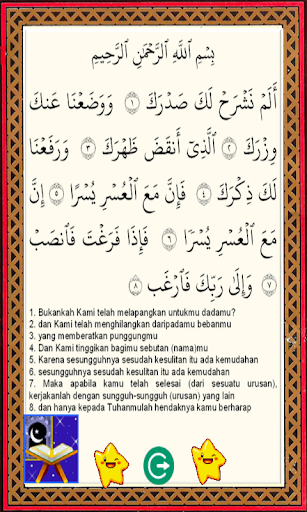 بِسْمِ ٱللَّهِ ٱلرَّحْمَٰنِ ٱلرَّحِيمِ
أَلَمْ نَشْرَحْ لَكَ صَدْرَكَ ١ وَوَضَعْنَا عَنكَ
وِزْرَكَ ٢ ٱلَّذِىٓ أَنقَضَ ظَهْرَكَ ٣ وَرَفَعْنَا
لَكَ ذِكْرَكَ ٤ فَإِنَّ مَعَ ٱلْعُسْرِ يُسْرًا ٥ إِنَّ
مَعَ ٱلْعُسْرِ يُسْرًا ٦ فَإِذَا فَرَغْتَ فَٱنصَبْ
٧ وَإِلَىٰ رَبِّكَ فَٱرْغَب ٨
1. Bukankah Kami telah melapangkan untukmu dadamu?
2. dan Kami telah menghilangkan daripadamu bebanmu
3. yang memberatkan punggungmu
4. Dan Kami tinggikan bagimu sebutan (nama)mu
5. Karena sesungguhnya sesudah kesulitan itu ada kemudahan
6. sesungguhnya sesudah kesulitan itu ada kemudahan
7. Maka apabila kamu telah selesai (dari sesuatu urusan),
kerjakanlah dengan sungguh-sungguh (urusan) yang lain
8. dan hanya kepada Tuhanmulah hendaknya kamu berharap